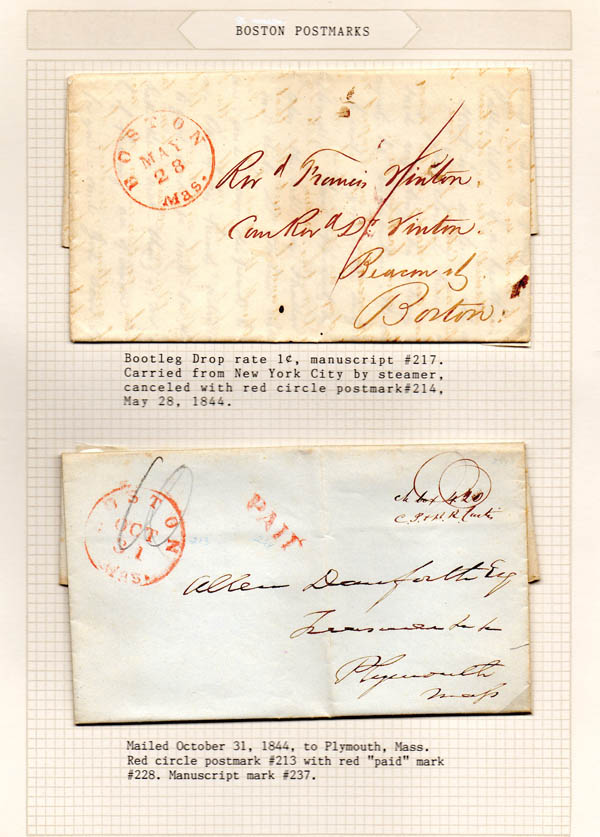 BOSTON POSTMARKS
BOSTON
MAY
28
Mas.
Rev d Francis Vinton.
Care Rev d Dr Vinton.
Beacon st.
Boston.
Bootleg Drop rate 1¢, manuscript #217.
Carried from New York City by steamer,
canceled with red circle postmark#214,
May 28, 1844.
BOSTON
OCT
31
MASS.
PAID
Ch box 420
Allen Danforth Esq
Plymouth
Mass
Mailed October 31, 1844, to Plymouth, Mass.
Red circle postmark #213 with red "paid" mark
#228. Manuscript mark #237.